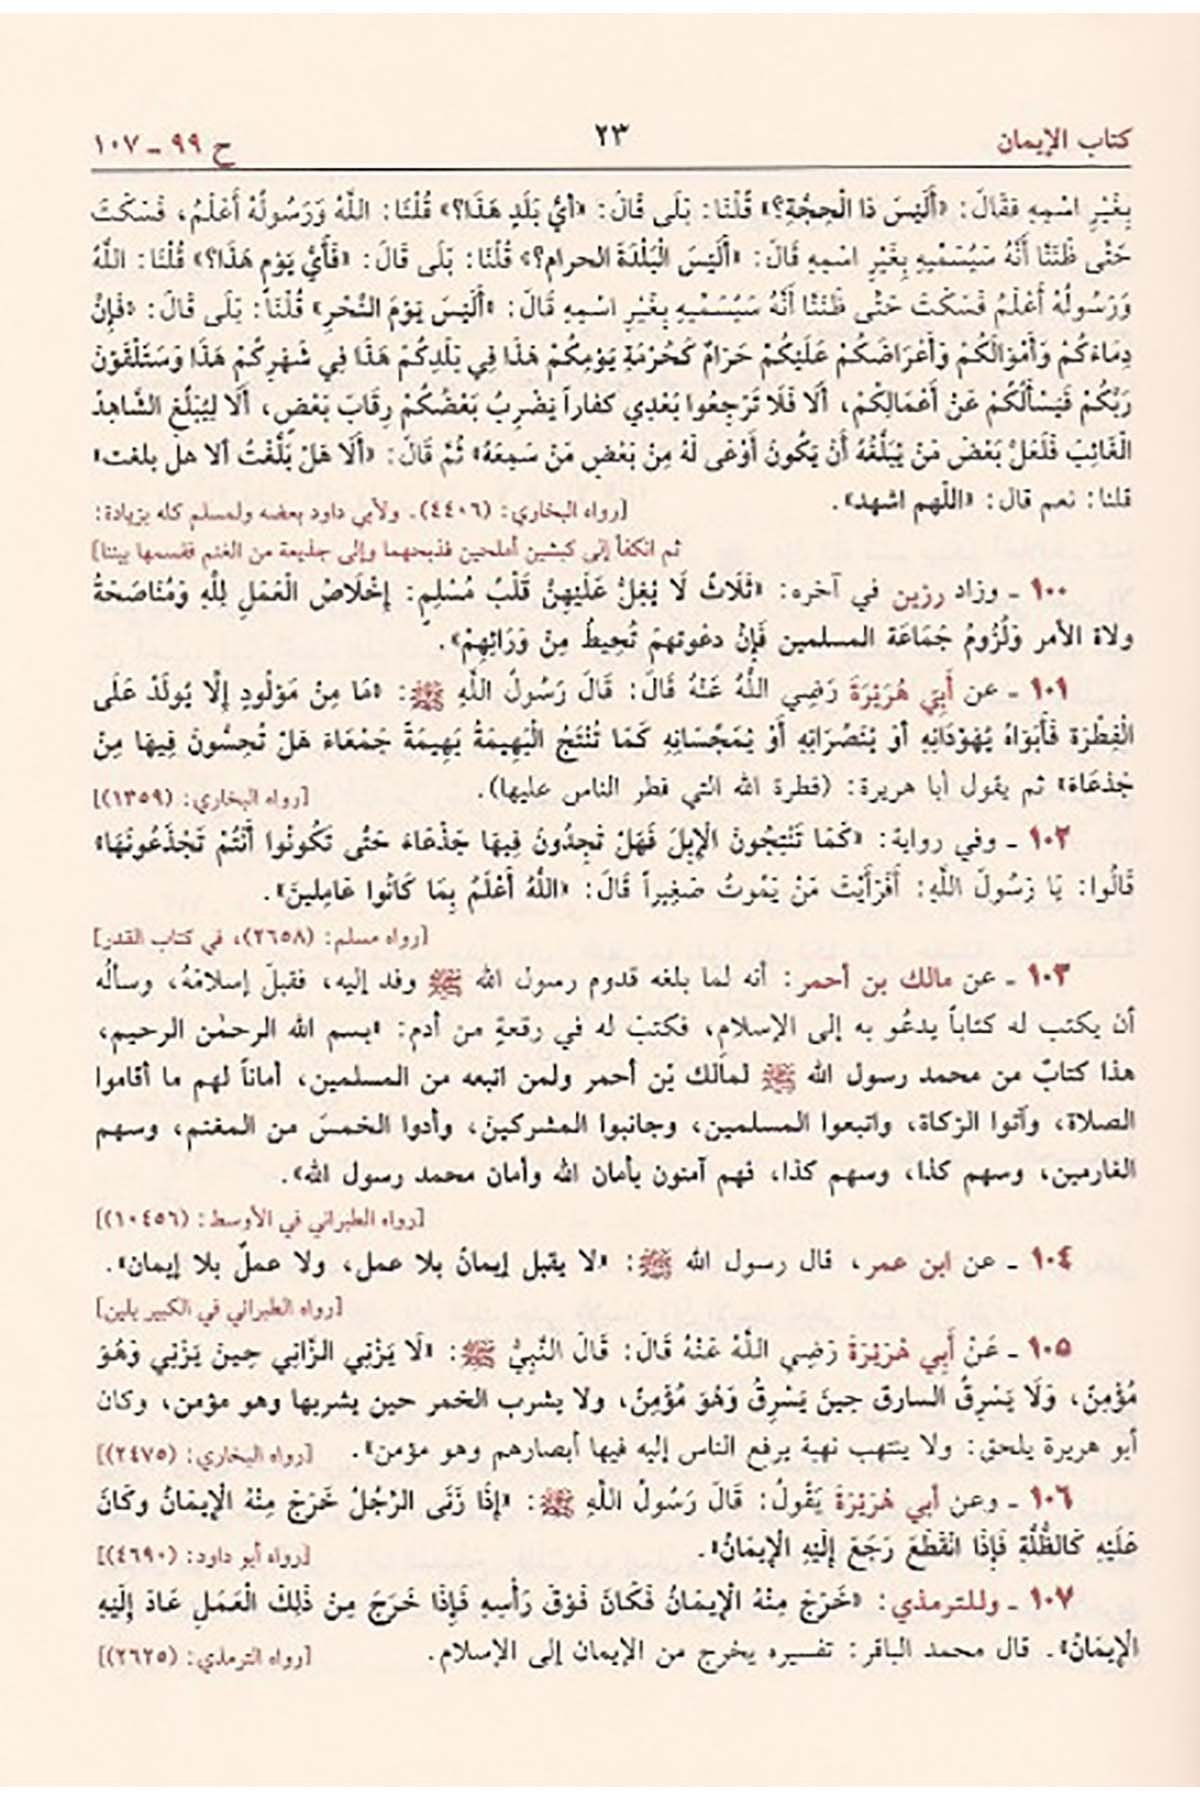 كتاب الإيمان ٢٣ ح ٩٩ - ١٠٧
بِغَيْرِ اسْمِهِ فقَالَ: «أَلَيْسَ ذَا الْحِجَّةِ؟» قُلْنَا: بَلَى قَالَ: «أَيُّ بَلَدٍ هَذَا؟» قُلْنَا: اللَّهُ وَرَسُولُهُ أَعْلَمُ، فَسَكَتَ
حَتَّى ظَنَنَّا أَنَّهُ سَيُسَمِّيهِ بِغَيْرِ اسْمِهِ قَالَ: «أَلَيْسَ الْبَلْدَةَ الحرام؟» قُلْنَا: بَلَى قَالَ: «فَأَيُّ يَوْمٍ هَذَا؟» قُلْنَا: اللَّهُ
وَرَسُولُهُ أَعْلَمُ فَسَكَتَ حَتَّى ظَنَنَّا أَنَّهُ سَيُسَمِّيهِ بِغَيْرِ اسْمِهِ قَالَ: «أَلَيْسَ يَوْمَ النَّحْرِ» قُلْنَا: بَلَى قَالَ: «فَإِنَّ
دِمَاءَكُمْ وَأَمْوَالَكُمْ وَأَعْرَاضَكُمْ عَلَيْكُمْ حَرَامٌ كَحُرْمَةِ يَوْمِكُمْ هَذَا فِي بَلَدِكُمْ هَذَا فِي شَهْرِكُمْ هَذَا وَسَتَلْقَوْنَ
رَبَّكُمْ فَيَسْأَلُكُمْ عَنْ أَعْمَالِكُمْ، أَلَا فَلَا تَرْجِعُوا بَعْدِي كفاراً يَضْرِبُ بَعْضُكُمْ رِقَابَ بَعْضٍ، أَلَا لِيُبَلِّغِ الشَّاهِدُ
الْغَائِبَ فَلَعَلَّ بَعْضَ مَنْ يُبَلَّغُهُ أَنْ يَكُونَ أَوْعَى لَهُ مِنْ بَعْضِ مَنْ سَمِعَهُ» ثُمَّ قَالَ: «أَلَا هَلْ بَلَّغْتُ ألا هل بلغت»
قلنا: نعم قال: «اللهم اشهد». [رواه البخاري: (٤٤٠٦). ولأبي داود بعضه ولمسلم كله بزيادة:
ثم انكفأ إلى كبشين أملحين فذبحهما وإلى جذيعة من الغنم فقسمها بيننا]
١٠٠ - وزاد رزين في آخره: «ثَلَاثٌ لَا يُغِلُّ عَلَيْهِنَّ قَلْبُ مُسْلِمٍ: إِخْلَاصُ الْعَمَلِ لِلَّهِ وَمُنَاصَحَةُ
ولاة الأمر وَلُزُومُ جَمَاعَة المسلمين فَإِنَّ دعْوتهمْ تُحِيطُ مِنْ وَرَائِهِمْ».
١٠١ - عن أَبِي هُرَيْرَةَ رَضِي اللَّهُ عَنْهُ قَالَ: قَالَ رَسُولُ اللَّهِ ﷺ: «مَا مِنْ مَوْلُودٍ إِلَّا يُولَدُ عَلَى
الْفِطْرَة فَأَبَوَاهُ يُهَوِّدَانِهِ أَوْ يُنَصِّرَانِهِ أَوْ يُمَجِّسَانِهِ كَمَا تُنْتَجُ الْبَهِيمَةُ بَهِيمَةً جَمْعَاءَ هَلْ تُحِسُّونَ فِيهَا مِنْ
جَدْعَاءَ» ثم يقول أبا هريرة: (فطرة الله التي فطر الناس عليها). [رواه البخاري: (١٣٥٩)]
١٠٢ - وفي رواية: «كَمَا تَنْتِجُونَ الْإِبِلَ فَهَلْ تَجِدُونَ فِيهَا جَدْعَاءَ حَتَّى تَكُونُوا أَنْتُمْ تَجْدَعُونَهَا»
قَالُوا: يَا رَسُولَ اللَّهِ: أَفَرَأَيْتَ مَنْ يَمُوتُ صَغِيراً قَالَ: «اللَّهُ أَعْلَمُ بِمَا كَانُوا عَامِلِينَ».
[رواه مسلم: (٢٦٥٨)، في كتاب القدر]
١٠٣ - عن مالك بن أحمر: أنه لما بلغه قدوم رسول الله ﷺ وفد إليه، فقبلَ إسلامَهُ، وسألهُ
أن يكتب له كتاباً يدعُو به إلى الإسلامِ، فكتبَ له في رقعةٍ من أدم: «بسم الله الرحمٰن الرحيم،
هذا كتابٌ من محمد رسول الله ﷺ لمالك بْن أحمر ولمن اتبعه من المسلمين، أماناً لهم ما أقاموا
الصلاة، وآتوا الزكاة، واتبعوا المسلمين، وجانبوا المشركينَ، وأدوا الخمسَ من المغنم، وسهم
الغارمين، وسهم كذا، وسهم كذا، فهم آمنون بأمان الله وأمان محمد رسول الله».
[رواه الطبراني في الأوسط: (١٠٤٥٦)]
١٠٤ - عن ابن عمر، قال رسول الله ﷺ: «لا يقبل إيمانٌ بلا عمل، ولا عملٌ بلا إيمان».
[رواه الطبراني في الكبير بلين]
١٠٥ - عَنْ أَبِي هُرَيْرَةَ رَضِي اللَّهُ عَنْهُ قَالَ: قَالَ النَّبِيُّ ﷺ: «لَا يَزْنِي الزَّانِي حِينَ يَزْنِي وَهُوَ
مُؤْمِنٌ، وَلَا يَسْرِقُ السارق حِينَ يَسْرِقُ وَهُوَ مُؤْمِنٌ، ولا يشرب الخمر حين يشربها وهو مؤمن، وكان
أبو هريرة يلحق: ولا ينتهب نهبة يرفع الناس إليه فيها أبصارهم وهو مؤمن». [رواه البخاري: (٢٤٧٥)]
١٠٦ - وعن أبي هُرَيْرَةَ يَقُولُ: قَالَ رَسُولُ اللَّهِ ﷺ: «إِذَا زَنَى الرَّجُلُ خَرَجَ مِنْهُ الْإِيمَانُ وكَانَ
عَلَيْهِ كَالظُّلَّةِ فَإِذَا انْقَطَعَ رَجَعَ إِلَيْهِ الْإِيمَانُ». [رواه أبو داود: (٤٦٩٠)]
١٠٧ - وللترمذي: «خَرَجَ مِنْهُ الْإِيمَانُ فَكَانَ فَوْقَ رَأْسِهِ فَإِذَا خَرَجَ مِنْ ذَلِكَ الْعَمَلِ عَادَ إِلَيْهِ
الْإِيمَانُ». قال محمد الباقر: تفسيره يخرج من الإيمان إلى الإسلام. [رواه الترمذي: (٢٦٢٥)]